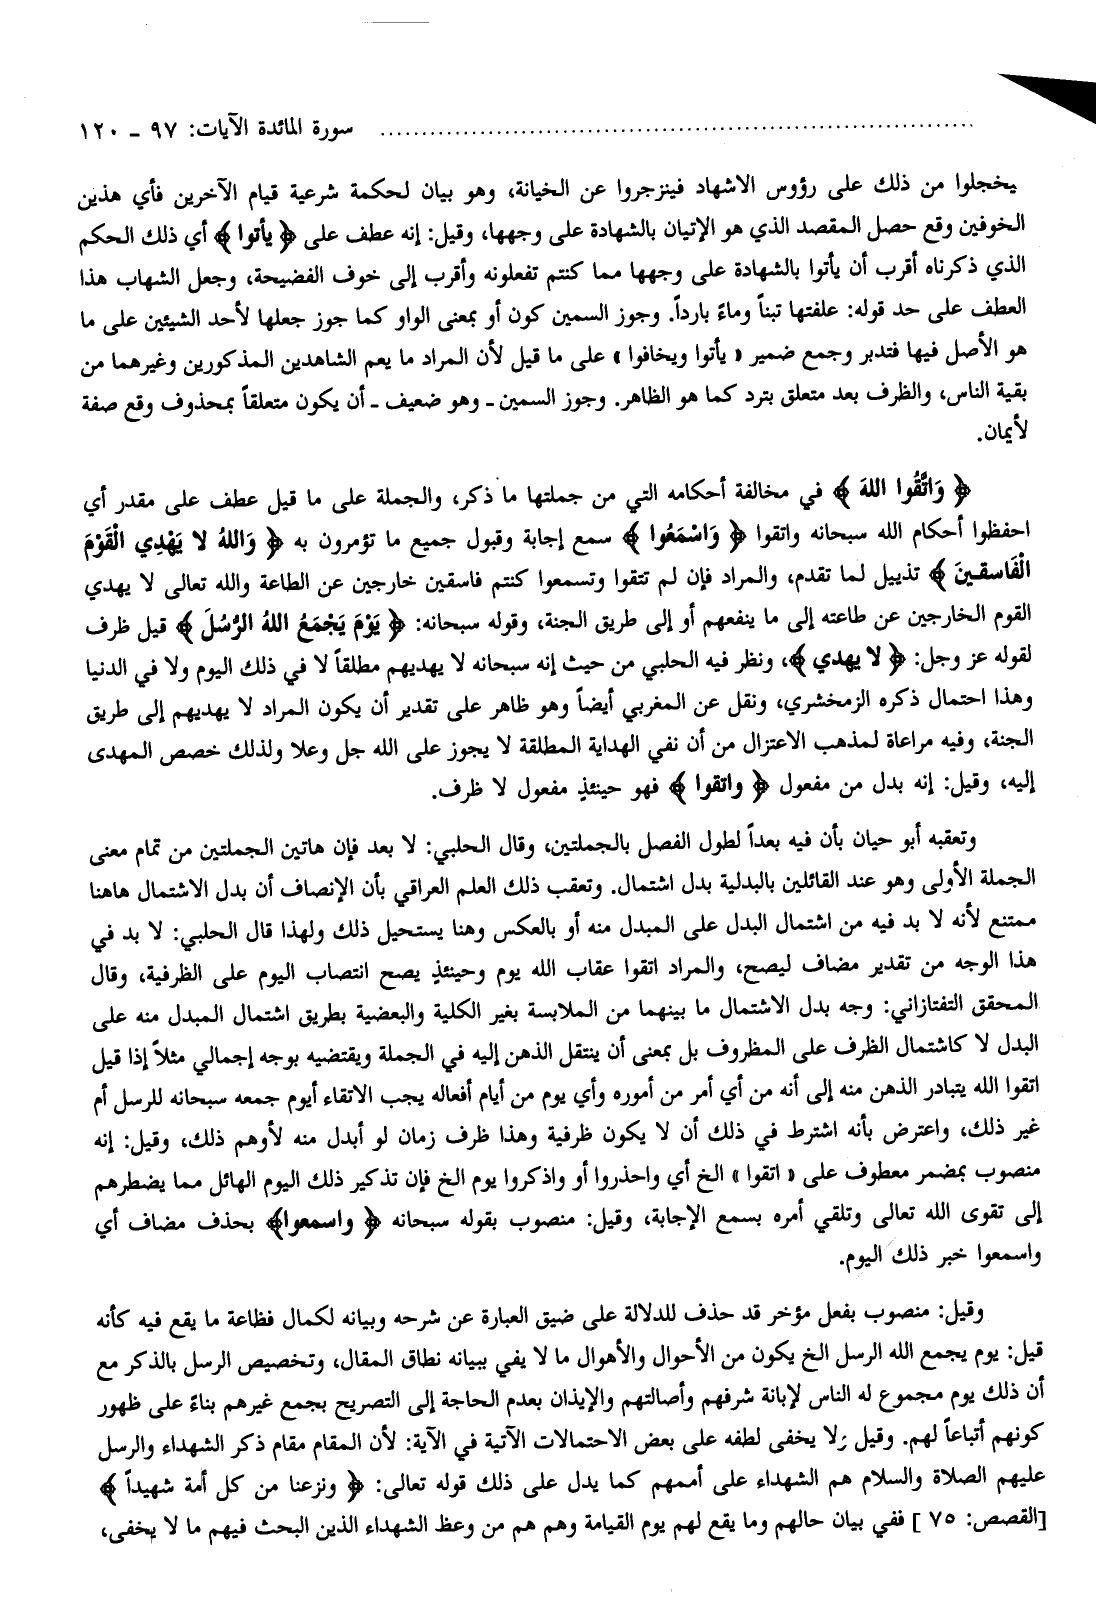 سورة المائدة الآيات: ٩٧ ـ ١٢٠ ..........................................................................
يخجلوا من ذلك على رؤوس الاشهاد فينزجروا عن الخيانة، وهو بيان لحكمة شرعية قيام الآخرين فأي هذين
الخوفين وقع حصل المقصد الذي هو الإتيان بالشهادة على وجهها، وقيل: إنه عطف على ﴿ يأتوا ﴾ أي ذلك الحكم
الذي ذكرناه أقرب أن يأتوا بالشهادة على وجهها مما كنتم تفعلونه وأقرب إلى خوف الفضيحة، وجعل الشهاب هذا
العطف على حد قوله: علفتها تبناً وماءً بارداً. وجوز السمين كون أو بمعنى الواو كما جوز جعلها لأحد الشيئين على ما
هو الأصل فيها فتدبر وجمع ضمير « يأتوا ويخافوا » على ما قيل لأن المراد ما يعم الشاهدين المذكورين وغيرهما من
بقية الناس، والظرف بعد متعلق بترد كما هو الظاهر. وجوز السمين ـ وهو ضعيف ـ أن يكون متعلقاً بمحذوف وقع صفة
لأيمان.
﴿ وَاتَّقُوا اللهَ ﴾ في مخالفة أحكامه التي من جملتها ما ذكر، والجملة على ما قيل عطف على مقدر أي
احفظوا أحكام الله سبحانه واتقوا ﴿ وَاسْمَعُوا ﴾ سمع إجابة وقبول جميع ما تؤمرون به ﴿ وَاللهُ لا يَهْدِي الْقَوْمَ
الْفَاسقِينَ ﴾ تذييل لما تقدم، والمراد فإن لم تتقوا وتسمعوا كنتم فاسقين خارجين عن الطاعة والله تعالى لا يهدي
القوم الخارجين عن طاعته إلى ما ينفعهم أو إلى طريق الجنة، وقوله سبحانه: ﴿ يَوْمَ يَجْمَعُ اللهُ الرُّسُلَ ﴾ قيل ظرف
لقوله عز وجل: ﴿ لا يهدي ﴾، ونظر فيه الحلبي من حيث إنه سبحانه لا يهديهم مطلقاً لا في ذلك اليوم ولا في الدنيا
وهذا احتمال ذكره الزمخشري، ونقل عن المغربي أيضاً وهو ظاهر على تقدير أن يكون المراد لا يهديهم إلى طريق
الجنة، وفيه مراعاة لمذهب الاعتزال من أن نفي الهداية المطلقة لا يجوز على الله جل وعلا ولذلك خصص المهدى
إليه، وقيل: إنه بدل من مفعول ﴿ واتقوا ﴾ فهو حينئذٍ مفعول لا ظرف.
وتعقبه أبو حيان بأن فيه بعداً لطول الفصل بالجملتين، وقال الحلبي: لا بعد فإن هاتين الجملتين من تمام معنى
الجملة الأولى وهو عند القائلين بالبدلية بدل اشتمال. وتعقب ذلك العلم العراقي بأن الإنصاف أن بدل الاشتمال هاهنا
ممتنع لأنه لا بد فيه من اشتمال البدل على المبدل منه أو بالعكس وهنا يستحيل ذلك ولهذا قال الحلبي: لا بد في
هذا الوجه من تقدير مضاف ليصح، والمراد اتقوا عقاب الله يوم وحينئذٍ يصح انتصاب اليوم على الظرفية، وقال
المحقق التفتازاني: وجه بدل الاشتمال ما بينهما من الملابسة بغير الكلية والبعضية بطريق اشتمال المبدل منه على
البدل لا كاشتمال الظرف على المظروف بل بمعنى أن ينتقل الذهن إليه في الجملة ويقتضيه بوجه إجمالي مثلاً إذا قيل
اتقوا الله يتبادر الذهن منه إلى أنه من أي أمر من أموره وأي يوم من أيام أفعاله يجب الاتقاء أيوم جمعه سبحانه للرسل أم
غير ذلك، واعترض بأنه اشترط في ذلك أن لا يكون ظرفية وهذا ظرف زمان لو أبدل منه لأوهم ذلك، وقيل: إنه
منصوب بمضمر معطوف على « اتقوا » الخ أي واحذروا أو واذكروا يوم الخ فإن تذكير ذلك اليوم الهائل مما يضطرهم
إلى تقوى الله تعالى وتلقي أمره بسمع الإجابة، وقيل: منصوب بقوله سبحانه ﴿ واسمعوا﴾ بحذف مضاف أي
واسمعوا خبر ذلك اليوم.
وقيل: منصوب بفعل مؤخر قد حذف للدلالة على ضيق العبارة عن شرحه وبيانه لكمال فظاعة ما يقع فيه كأنه
قيل: يوم يجمع الله الرسل الخ يكون من الأحوال والأهوال ما لا يفي ببيانه نطاق المقال، وتخصيص الرسل بالذكر مع
أن ذلك يوم مجموع له الناس لإبانة شرفهم وأصالتهم والإيذان بعدم الحاجة إلى التصريح بجمع غيرهم بناءً على ظهور
كونهم أتباعاً لهم. وقيل ولا يخفى لطفه على بعض الاحتمالات الآتية في الآية: لأن المقام مقام ذكر الشهداء والرسل
عليهم الصلاة والسلام هم الشهداء على أممهم كما يدل على ذلك قوله تعالى: ﴿ ونزعنا من كل أمة شهيداً ﴾
[القصص: ٧٥ ] ففي بيان حالهم وما يقع لهم يوم القيامة وهم هم من وعظ الشهداء الذين البحث فيهم ما لا يخفى،